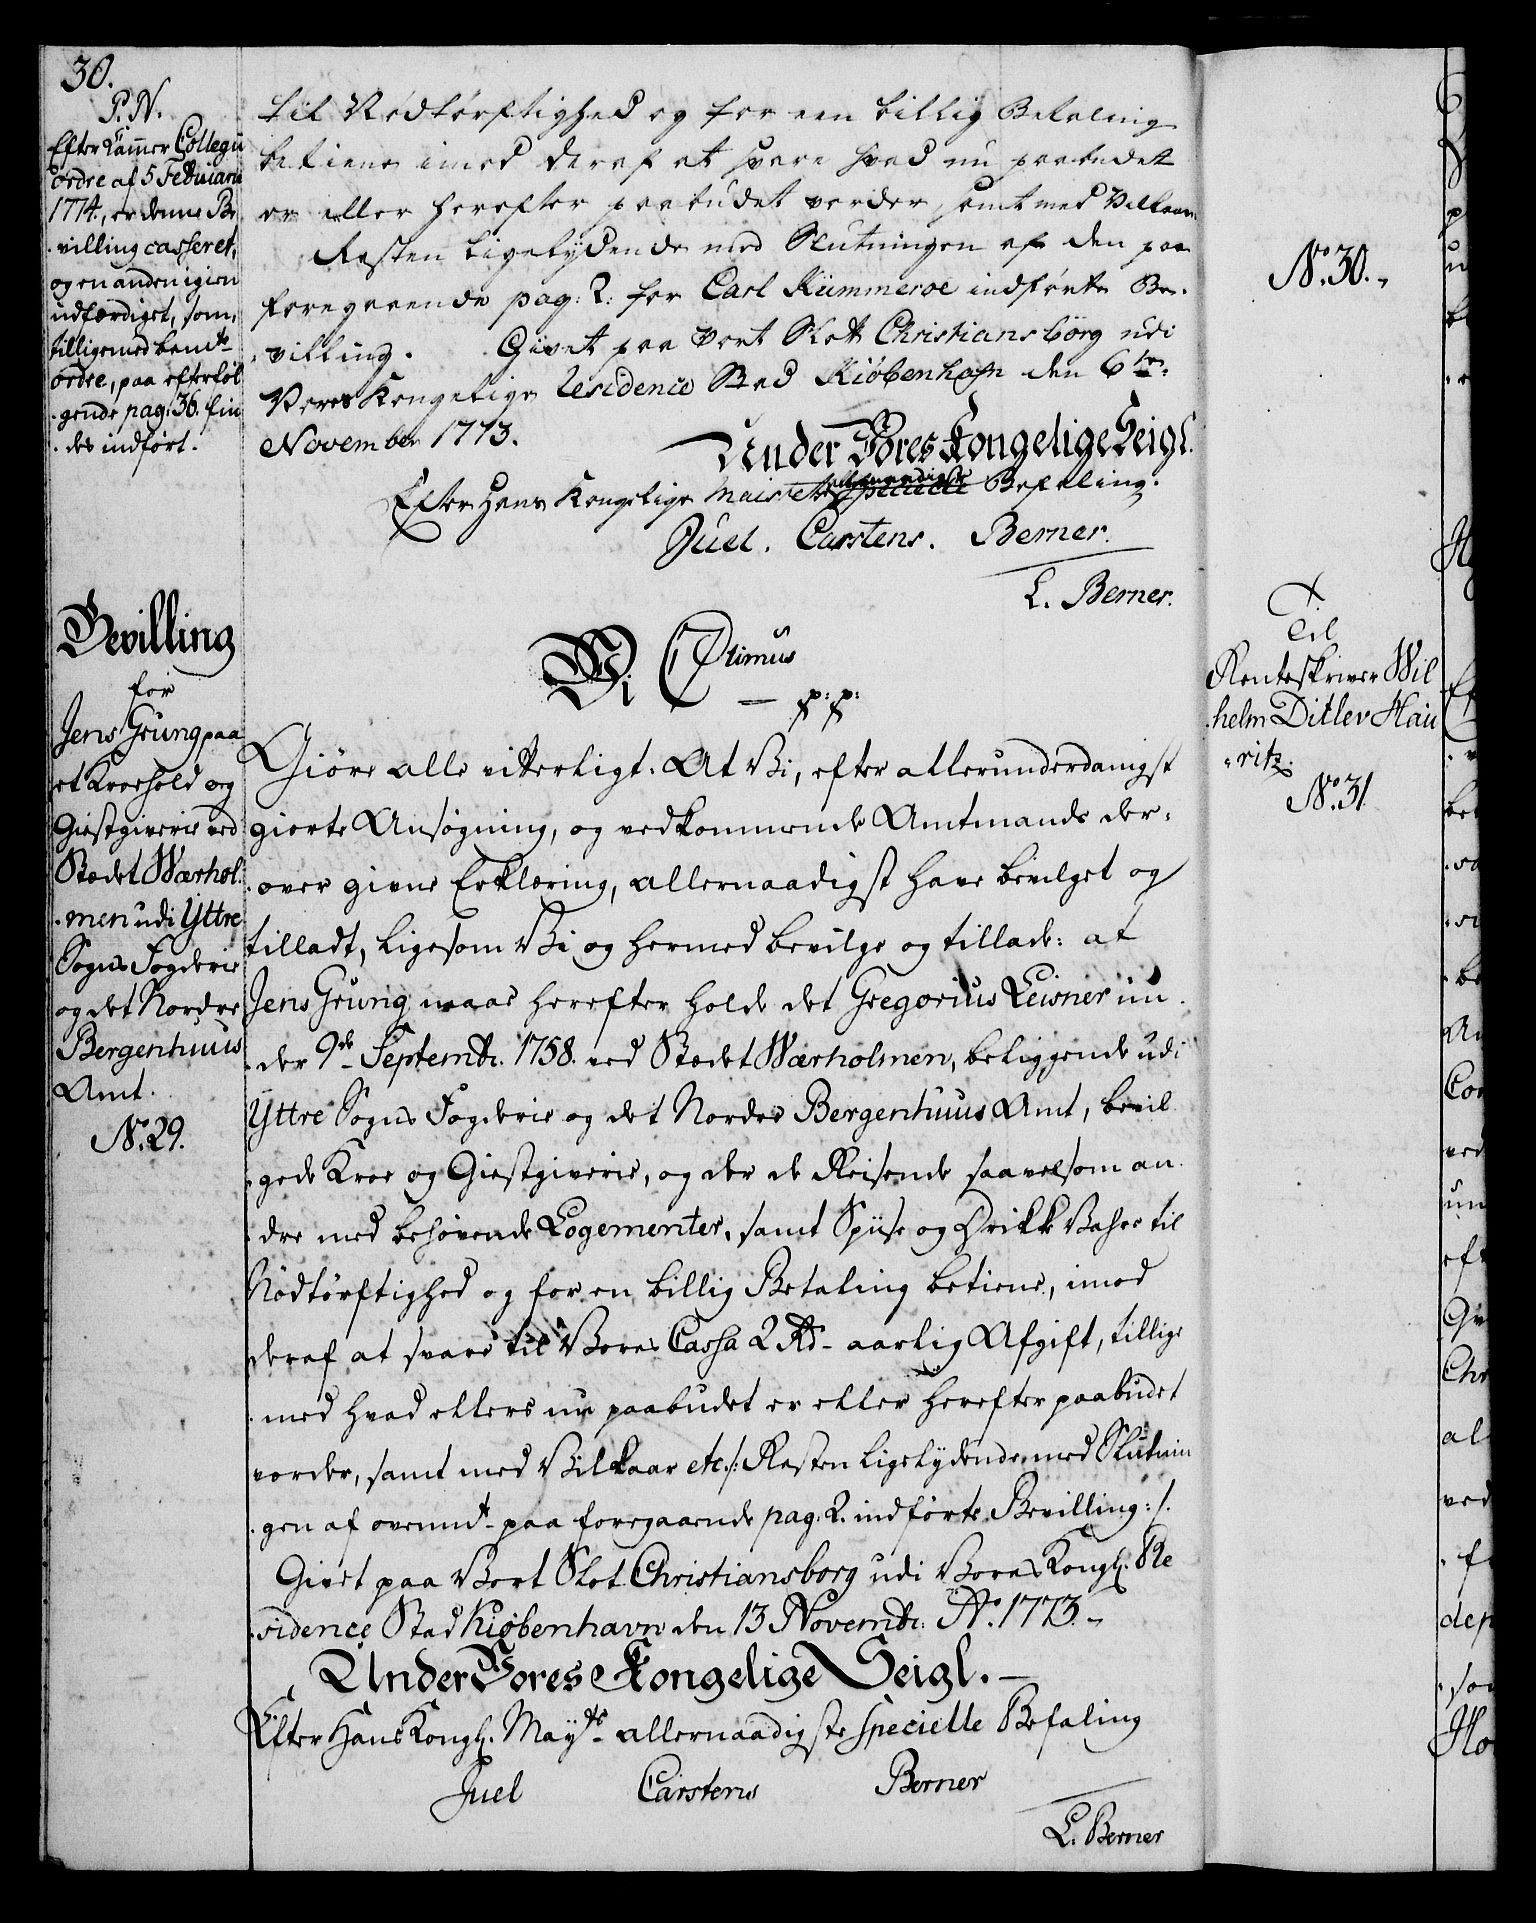 30.
P. N.
Efter Cam̄er Collegii
ordre af 5 Februarii
1774., er denne Be
villing casseret,
og en anden igien
udfærdiget, som,
tilligemed bemte
ordre, paa efterføl
gende pag: 36. fin
des indført.
til Nødtørftighed og for een billig Betaling
betiene imod deraf at svare hvad nu paabudet
er eller herefter paabudet vorder, samt med Velkaar
Resten ligelydende med Slutningen af den paa
foregaaende pag: 2: for Carl Kümmeroe indførte Be-
villing. Givet paa Vort Slott Christiansborg udi
Vores Kongelige Residence Stad Kiøbenhafn den 6te
November 1773.
Under Vores Kongelige Seigl.
allernaadigste
Efter Hans Kongelige Maiestets specielle Befaling.
Juel. Carstens. Berner.
L. Berner.
Bevilling
for
Jens Grung paa
et Kroehold og
Giestgiverie ved
Stædet Wærhol
men udi Yttre
Sogns Fogderie
og det Nordre
Bergenhuus
Amt.
No. 29.
Vi C7timus
p: p:
Giøre alle vitterligt: At Vi, efter allerunderdanigst
giorte Ansøgning, og vedkommende Amtmands der-
over givne Erklæring, allernaadigst have bevilget og
tilladt, ligesom Vi og hermed bevilge og tillade: at
Jens Grung maae herefter holde det Gregorius Leisner un
der 9de Septembr. 1758. ved Stædet Wærholmen, beliggende udi
Yttre Sogns Fogderie og det Nordre Bergenhuus Amt, bevil
gede Kroe og Giestgiverie, og der de Reisende saavelsom an
dre med behøvende Logementer, samt Spise og Drikke Vahre til
Nødtørftighed og for en billig Betaling betiene, imod
deraf at svare til Vores Cassa 2 Rd aarlig Afgift, tillige
med hvad ellers nu paabudet er eller herefter paabudet
vorder, samt med Vilkaar etc. /: Resten ligelydende med Slutnin
gen af ovennt paa foregaaende pag: 2. indførte Bevilling :/.
Givet paa Vort Slot Christiansborg udi Vores Kongl. Re
sidence Stad Kiøbenhavn den 13 Novembr. Ao. 1773.
Under Vores Kongelige Seigl.
Efter Hans Kongl. Mayts allernaadigste specielle Befaling
Juel Carstens Berner
L. Berner
No. 30.
Til
Renteskriver Wil
helm Ditlev Hau
ritz.
No. 31